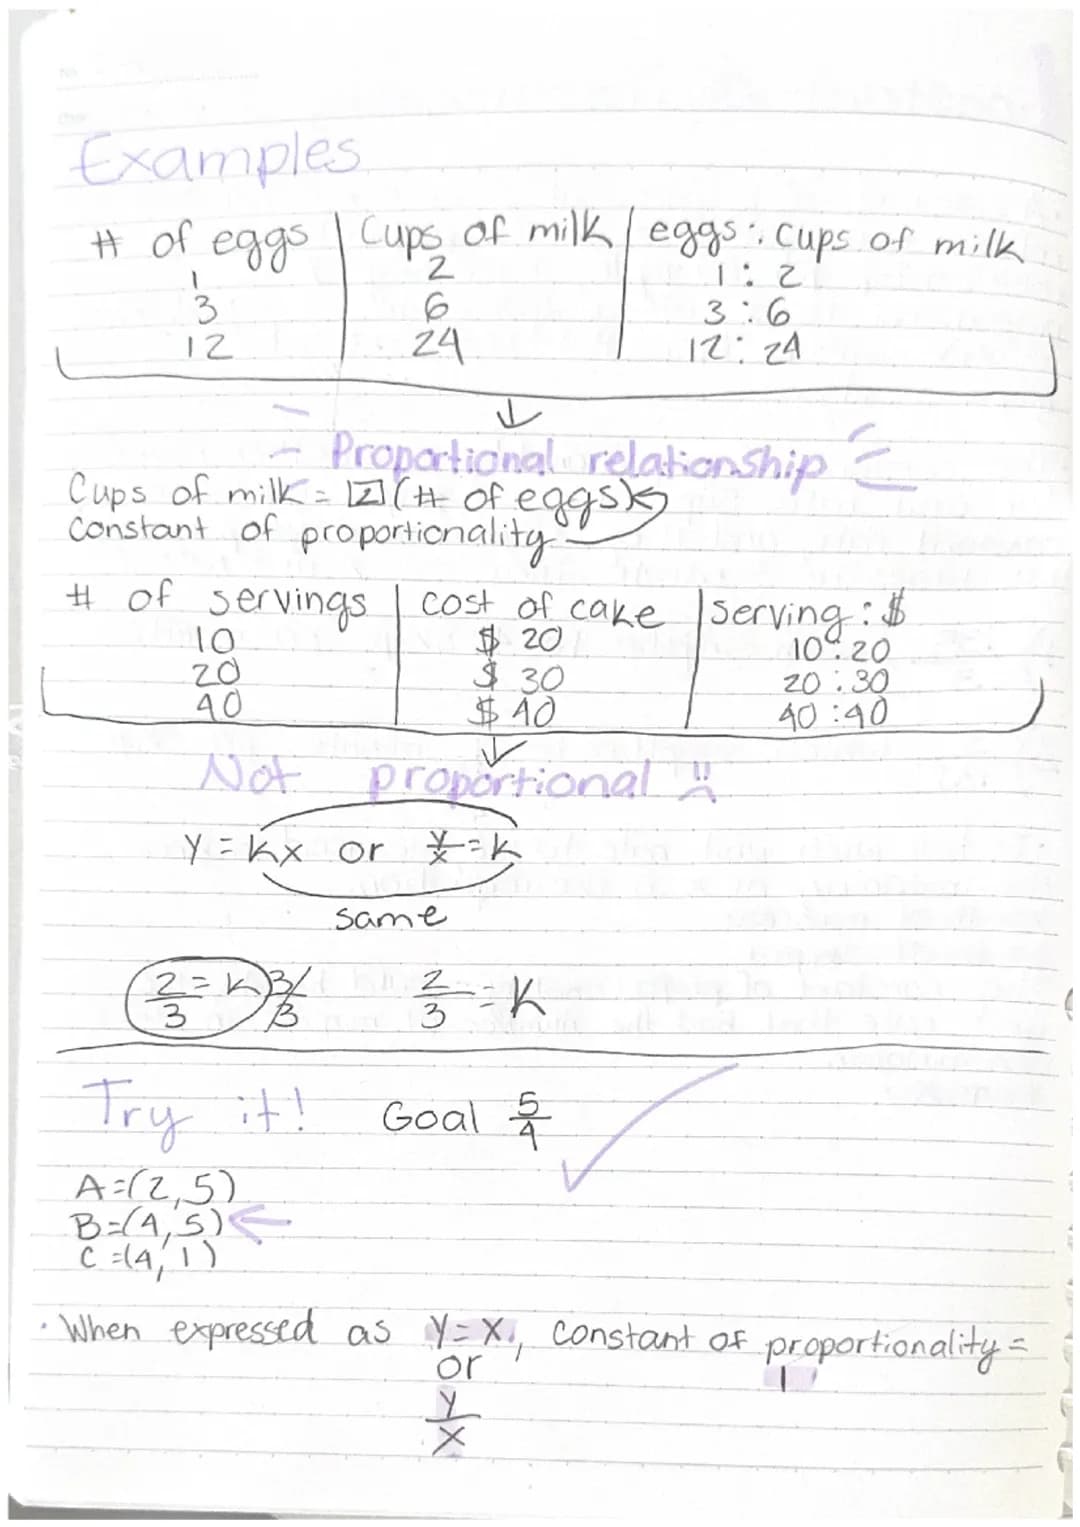 Examples
# of eggs | Cups of milk | eggs : cups of milk
1 | 2 | 1 : 2
3 | 6 | 3 : 6
12 | 24 | 12 : 24
Proportional relationship
Cups of milk = 2 (# of eggs)
Constant of proportionality
# of servings | cost of cake | serving : $
10 | $ 20 | 10 : 20
20 | $ 30 | 20 : 30
40 | $ 40 | 40 : 40
Not proportional
y = kx or y/x = k
same
2/3 = k 3/3 2/3 = k
Try it! Goal 5/4
A = (2, 5)
B = (4, 5)
C = (4, 1)
· When expressed as y = x, constant of proportionality =
or 1
y/x